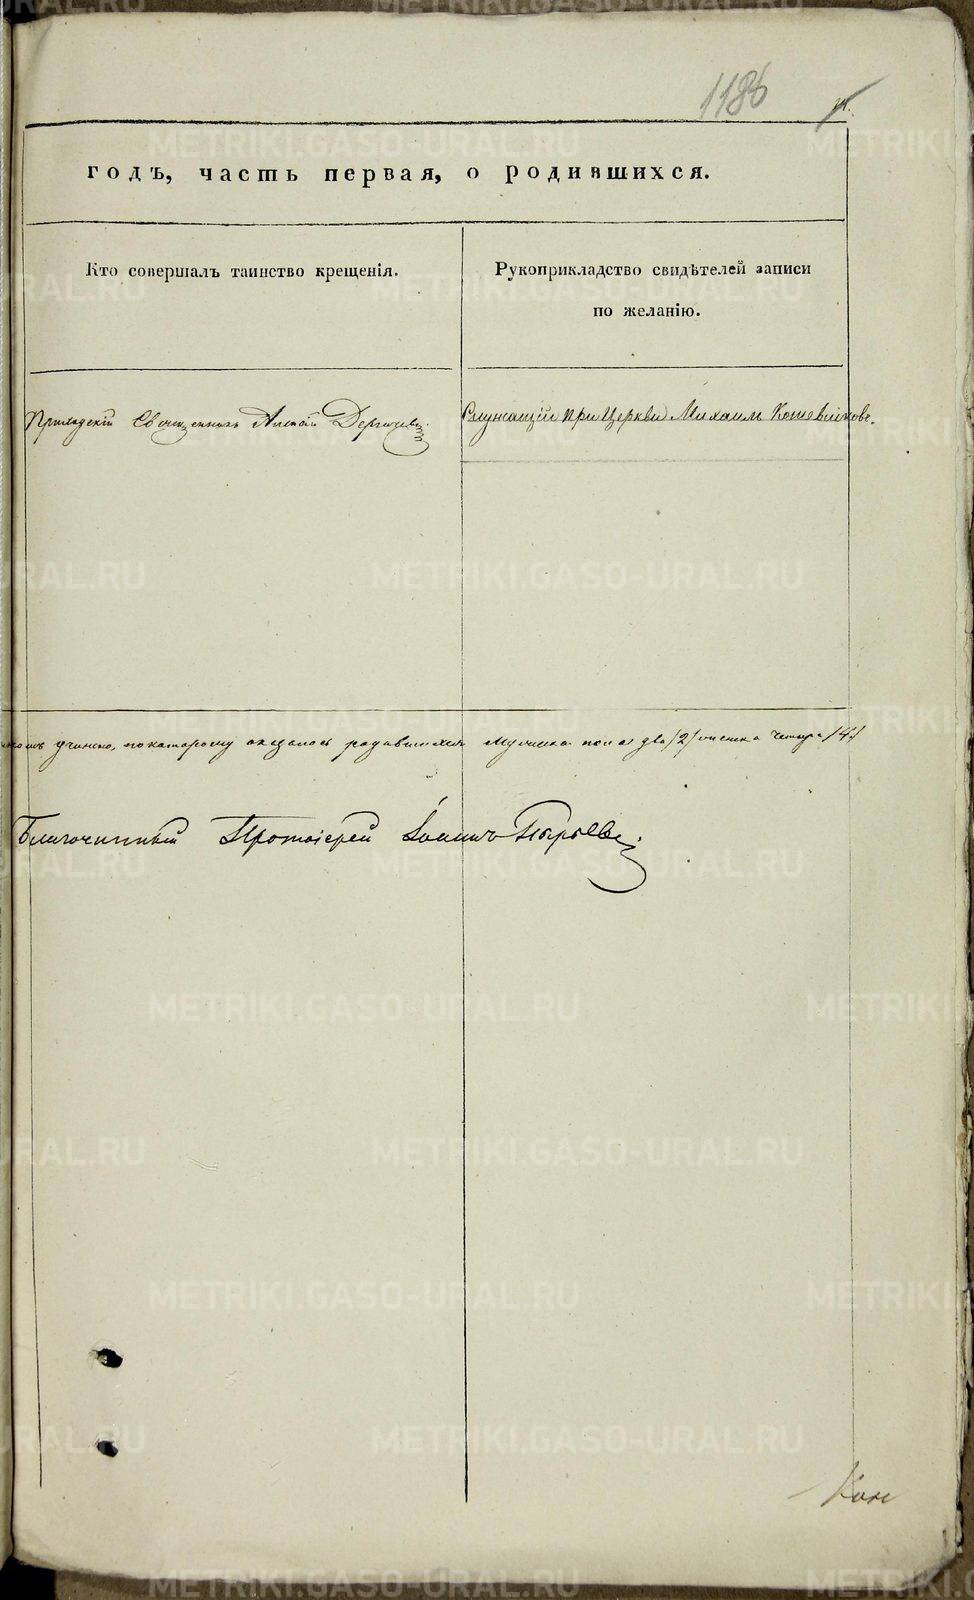 1186
годъ, часть первая, о родившихся.
Кто совершалъ таинство крещенія.
Рукоприкладство свидѣтелей записи
по желанію.
Приходскій Священникъ Дергачевъ
Служащій при Церкви Михаилъ Кожевниковъ.
учинено, по которому оказалось родившихся Мужеска пола два /2/ женска четыре /4/
Благочинный Протоіерей Іоаннъ Пырьевъ.
METRIKI.GASO-URAL.RU